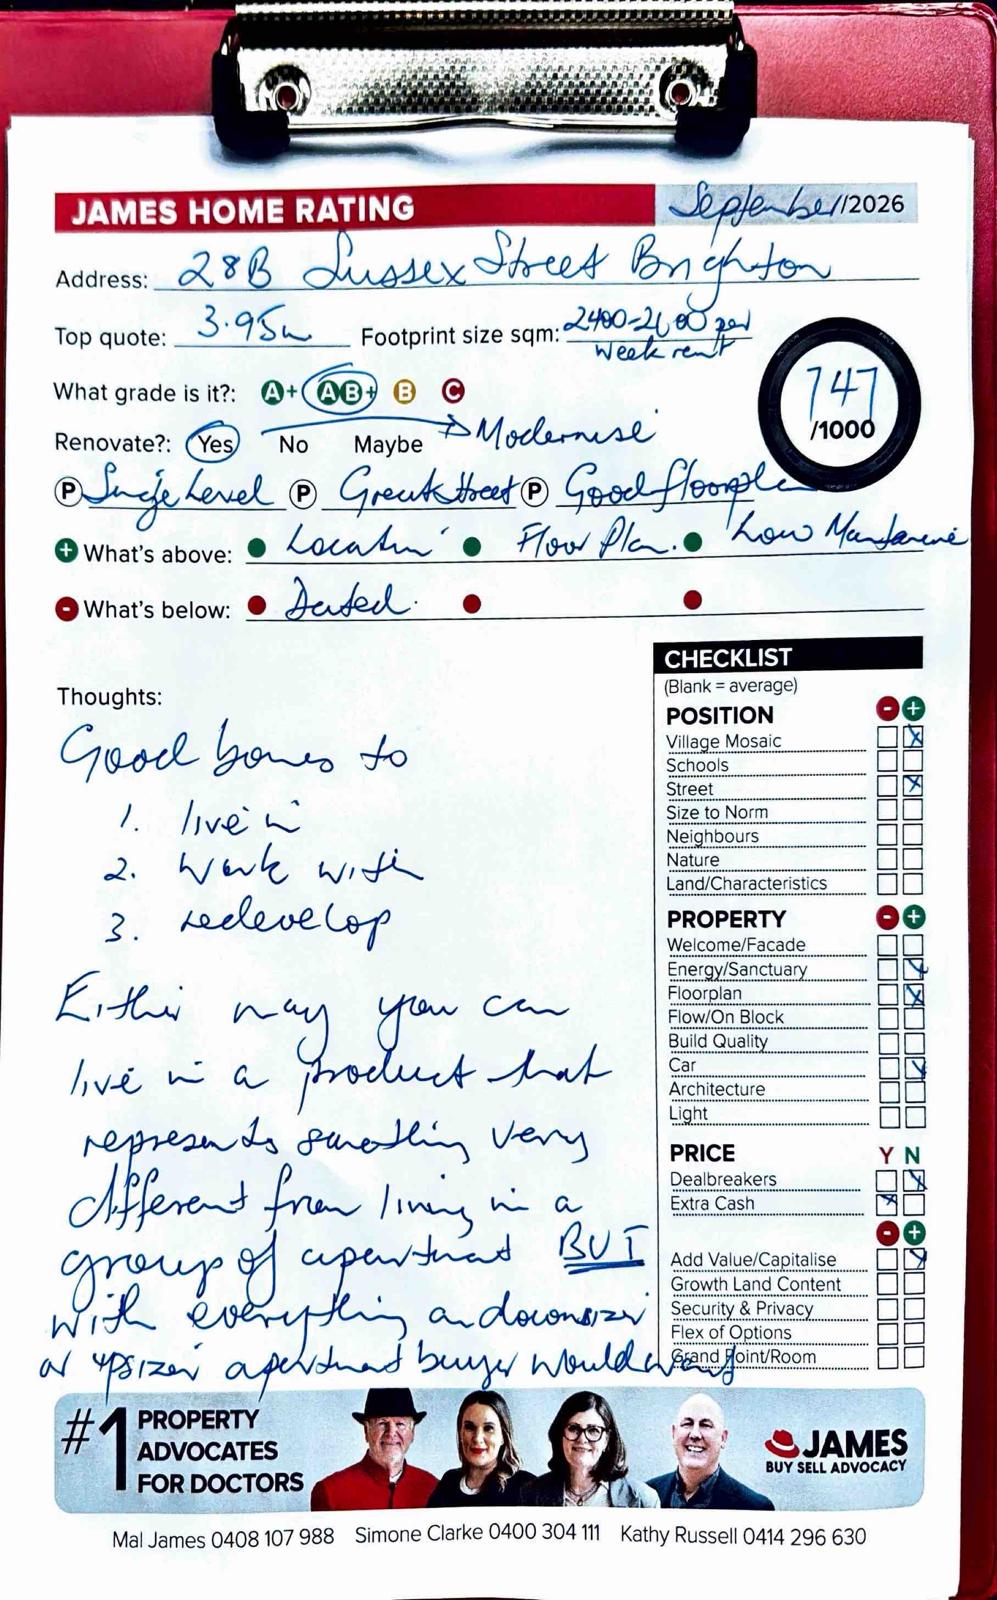 JAMES HOME RATING September/2026
Address: 28B Sussex Street Brighton
Top quote: 3.95m Footprint size sqm: 2400-2600 per
week rent
747
/1000
What grade is it?: A+ AB+ B C
Renovate?: Yes No Maybe Modernise
P Single Level P Great Street P Good floorplan
+ What's above: Location Floor Plan. Low Maintenance
- What's below: Dated.
Thoughts:
Good bones to
1. live in
2. work with
3. redevelop
Either way you can
live in a product that
represents something very
different from living in a
group of apartment BUT
with everything a downsizer
or upsizer apartment buyer would want
CHECKLIST
(Blank = average)
POSITION - +
Village Mosaic
Schools
Street
Size to Norm
Neighbours
Nature
Land/Characteristics
PROPERTY - +
Welcome/Facade
Energy/Sanctuary
Floorplan
Flow/On Block
Build Quality
Car
Architecture
Light
PRICE Y N
Dealbreakers
Extra Cash
- +
Add Value/Capitalise
Growth Land Content
Security & Privacy
Flex of Options
Grand Point/Room
#1 PROPERTY
ADVOCATES
FOR DOCTORS
JAMES
BUY SELL ADVOCACY
Mal James 0408 107 988 Simone Clarke 0400 304 111 Kathy Russell 0414 296 630